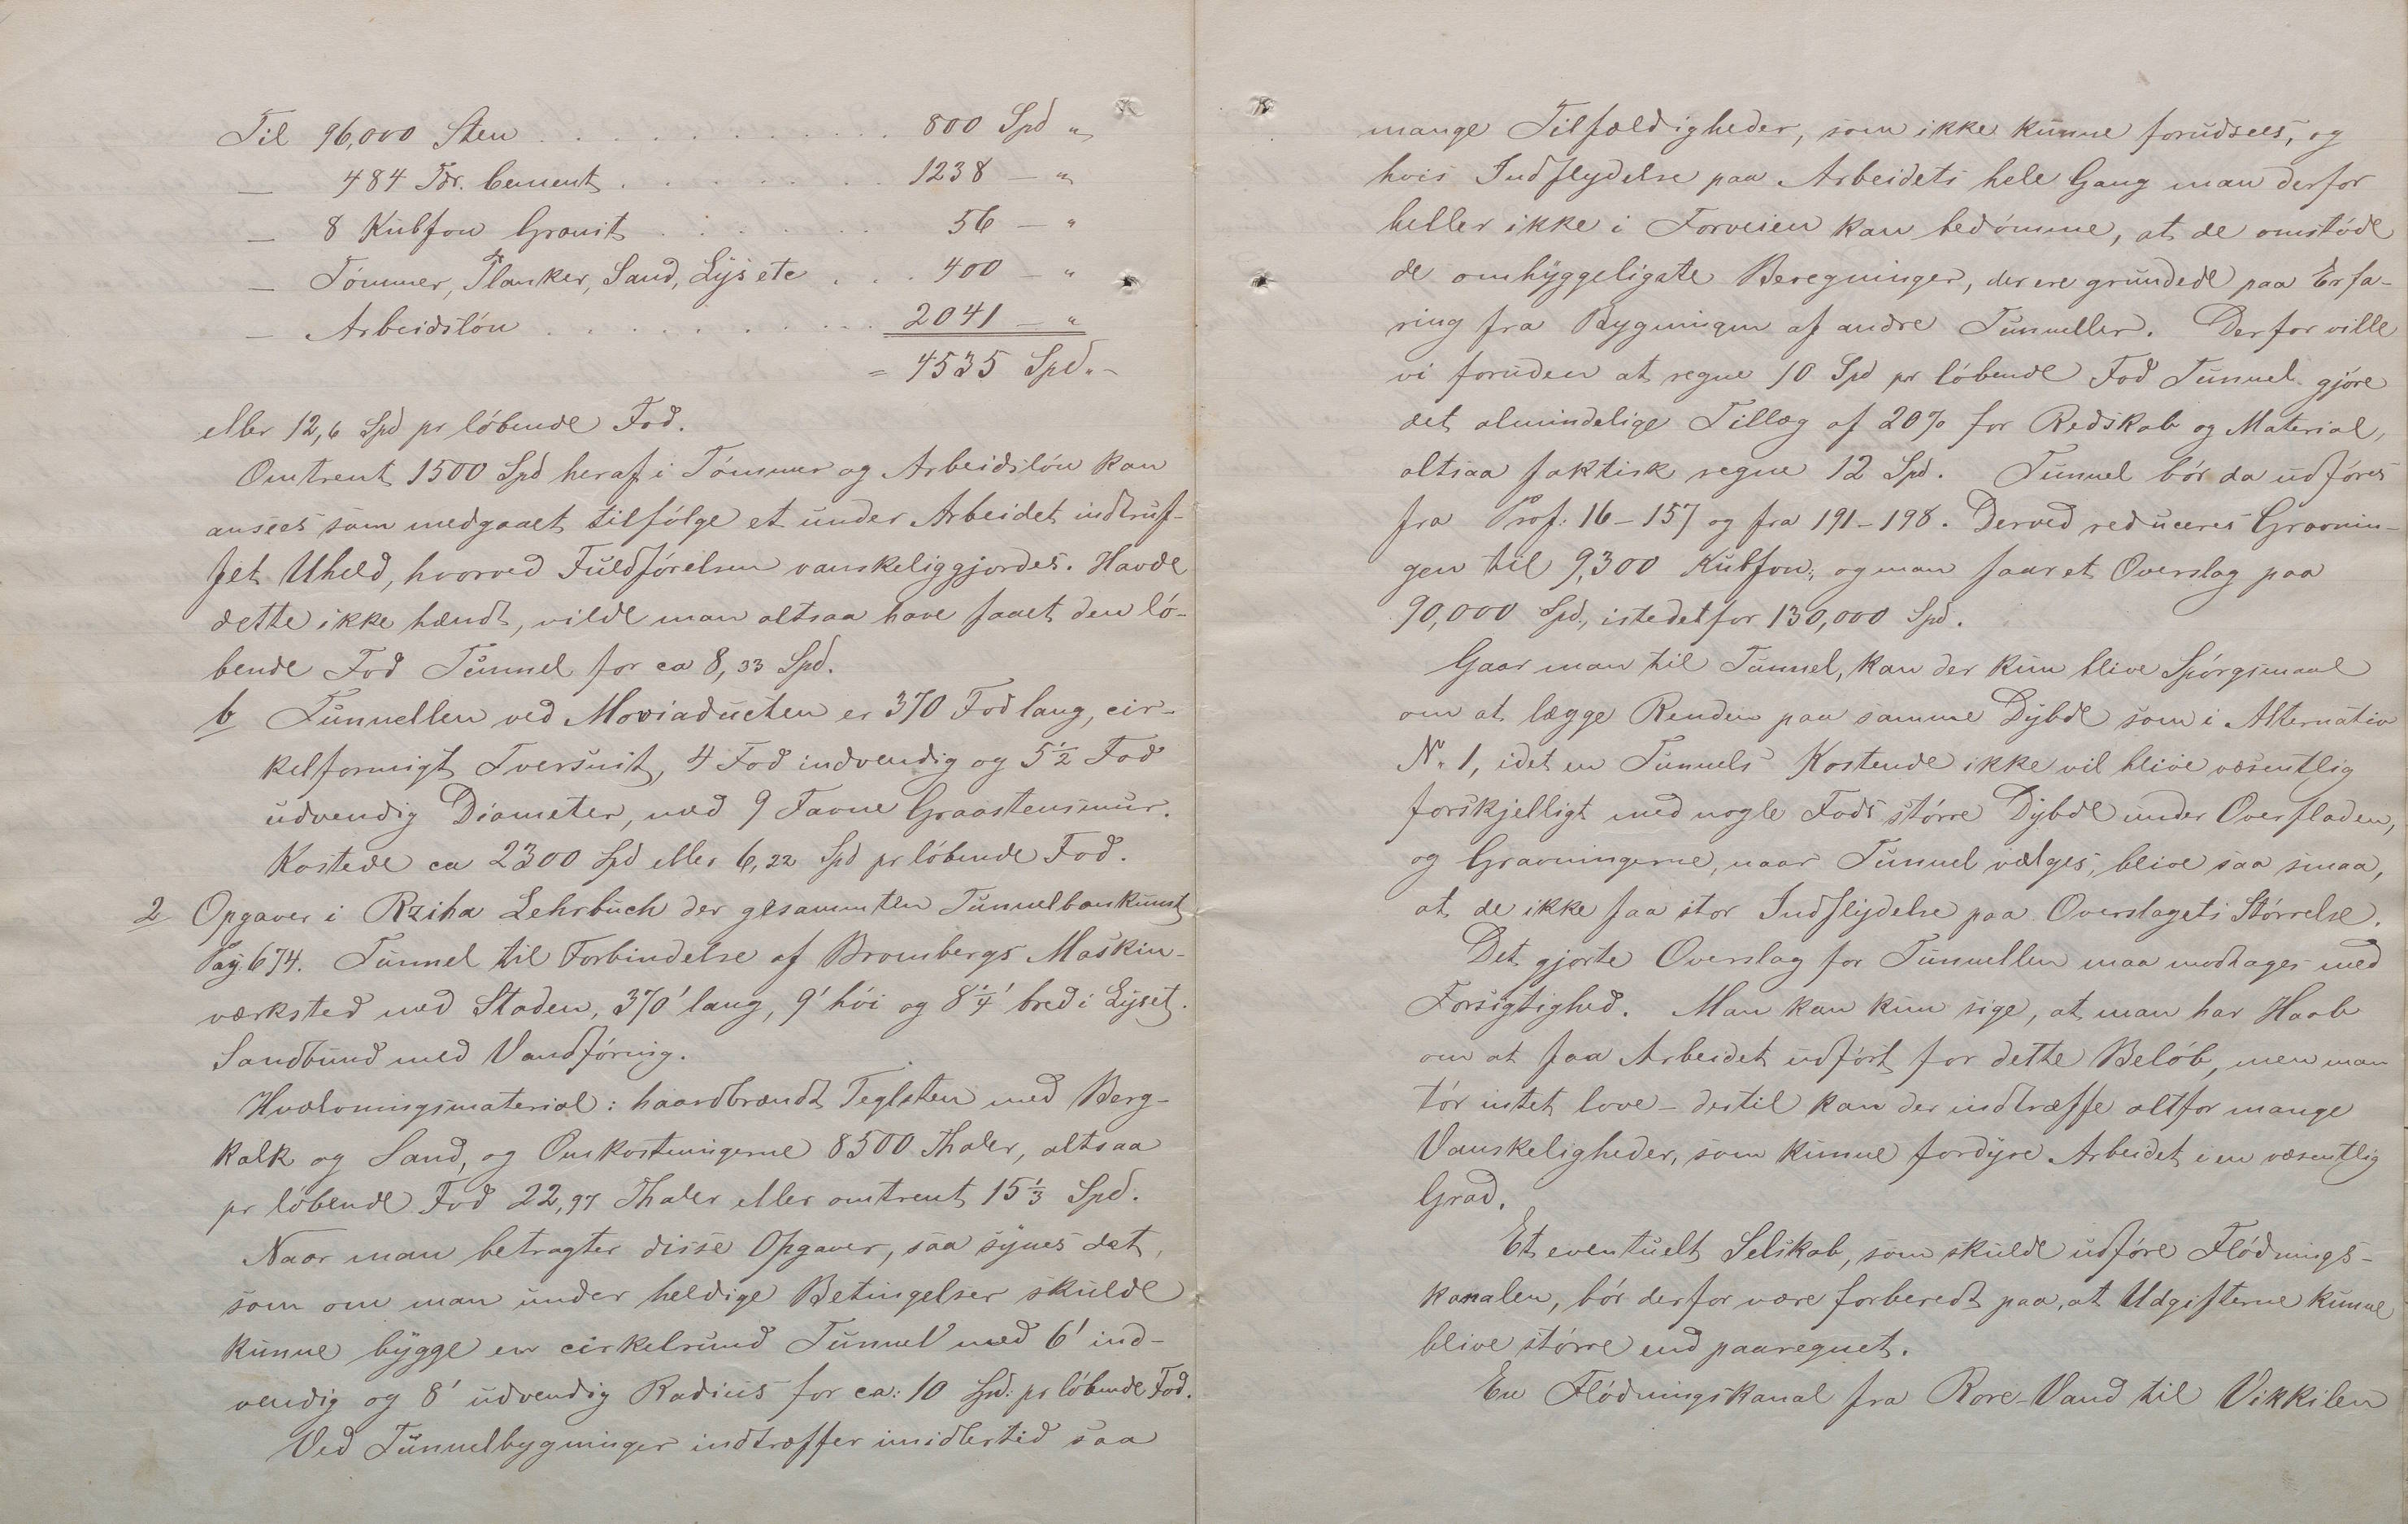 Til 96,000 Sten . . . . . . . . . . . . 800 Spd „
— 484 Tdr. Cement . . . . . . . . 1238 — „
— 8 Kubfvn Granit . . . . . . . 56 — „
— Tömmer, Planker, Sand, Lys etc . . . 400 — „
— Arbeidslön . . . . . . . . . . 2041 — „
= 4535 Spd. „ -
eller 12,6 Spd pr löbende Fod.
Omtrent 1500 Spd heraf i Tömmer og Arbeidslön kan
ansees som medgaaet tilfölge et under Arbeidet indtruf-
fet Uheld, hvorved Fuldförelsen vanskeliggjordes. Havde
dette ikke hændt, vilde man altsaa have faaet den lö-
bende Fod Tunnel for ca 8,33 Spd.
b Tunnellen ved Moviaducten er 370 Fod lang, cir-
kelformigt Tversnit, 4 Fod indvendig og 5½ Fod
udvendig Diameter, med 9 Favne Graastensmur.
Kostede ca 2300 Spd eller 6,22 Spd pr löbende Fod.
2 Opgaver i Rziha Lehrbuch der gesammten Tunnelbaukunst
Pag. 674. Tunnel til Forbindelse af Brombergs Maskin-
værksted med Staden, 370' lang, 9' höi og 8¼' bred i Lyset.
Sandbund med Vandföring.
Hvælvningsmaterial: haardbrændt Teglsten med Berg-
kalk og Sand, og Omkostningerne 8500 Thaler, altsaa
pr löbende Fod 22,97 Thaler eller omtrent 15⅓ Spd.
Naar man betragter disse Opgaver, saa synes det,
som om man under heldige Betingelser skulde
kunne bygge en cirkelrund Tunnel med 6' ind-
vendig og 8' udvendig Radius for ca: 10 Spd: pr löbende Fod.
Ved Tunnelbygninger indtræffer imidlertid saa
mange Tilfældigheder, som ikke kunne forudsees, og
hvis Indflydelse paa Arbeidets hele Gang man derfor
heller ikke i Forveien kan bedömme, at de omstöde
de omhyggeligste Beregninger, der ere grundede paa Erfa-
ring fra Bygningen af andre Tunneller. Derfor ville
vi foruden at regne 10 Spd pr löbende Fod Tunnel gjöre
det almindelige Tillæg af 20% for Redskab og Material,
altsaa faktisk regne 12 Spd. Tunnel bör da udföres
fra Prof: 16-157 og fra 191-198. Derved reduceres Gravnin-
gen til 9,300 Kubfvn:, og man faar et Overslag paa
90,000 Spd, istedetfor 130,000 Spd.
Gaar man til Tunnel, kan der kun blive Spörgsmaal
om at lægge Renden paa samme Dybde som i Alternativ
N. 1, idet en Tunnels Kostende ikke vil blive væsentlig
forskjelligt med nogle Fods större Dybde under Overfladen,
og Gravningerne, naar Tunnel vælges, blive saa smaa,
at de ikke faa stor Indflydelse paa Overslagets Störrelse.
Det gjorte Overslag for Tunnellen maa modtages med
Forsigtighed. Man kan kun sige, at man har Haab
om at faa Arbeidet udfört for dette Belöb, men man
tör intet love - dertil kan der indtræffe altfor mange
Vanskeligheder, som kunne fordyre Arbeidet i en væsentlig
Grad.
Et eventuelt Selskab, som skulde udföre Flödnings-
kanalen, bör derfor være forberedt paa, at Udgifterne kunne
blive större end paaregnet.
En Flödningskanal fra Rore-Vand til Vikkilen